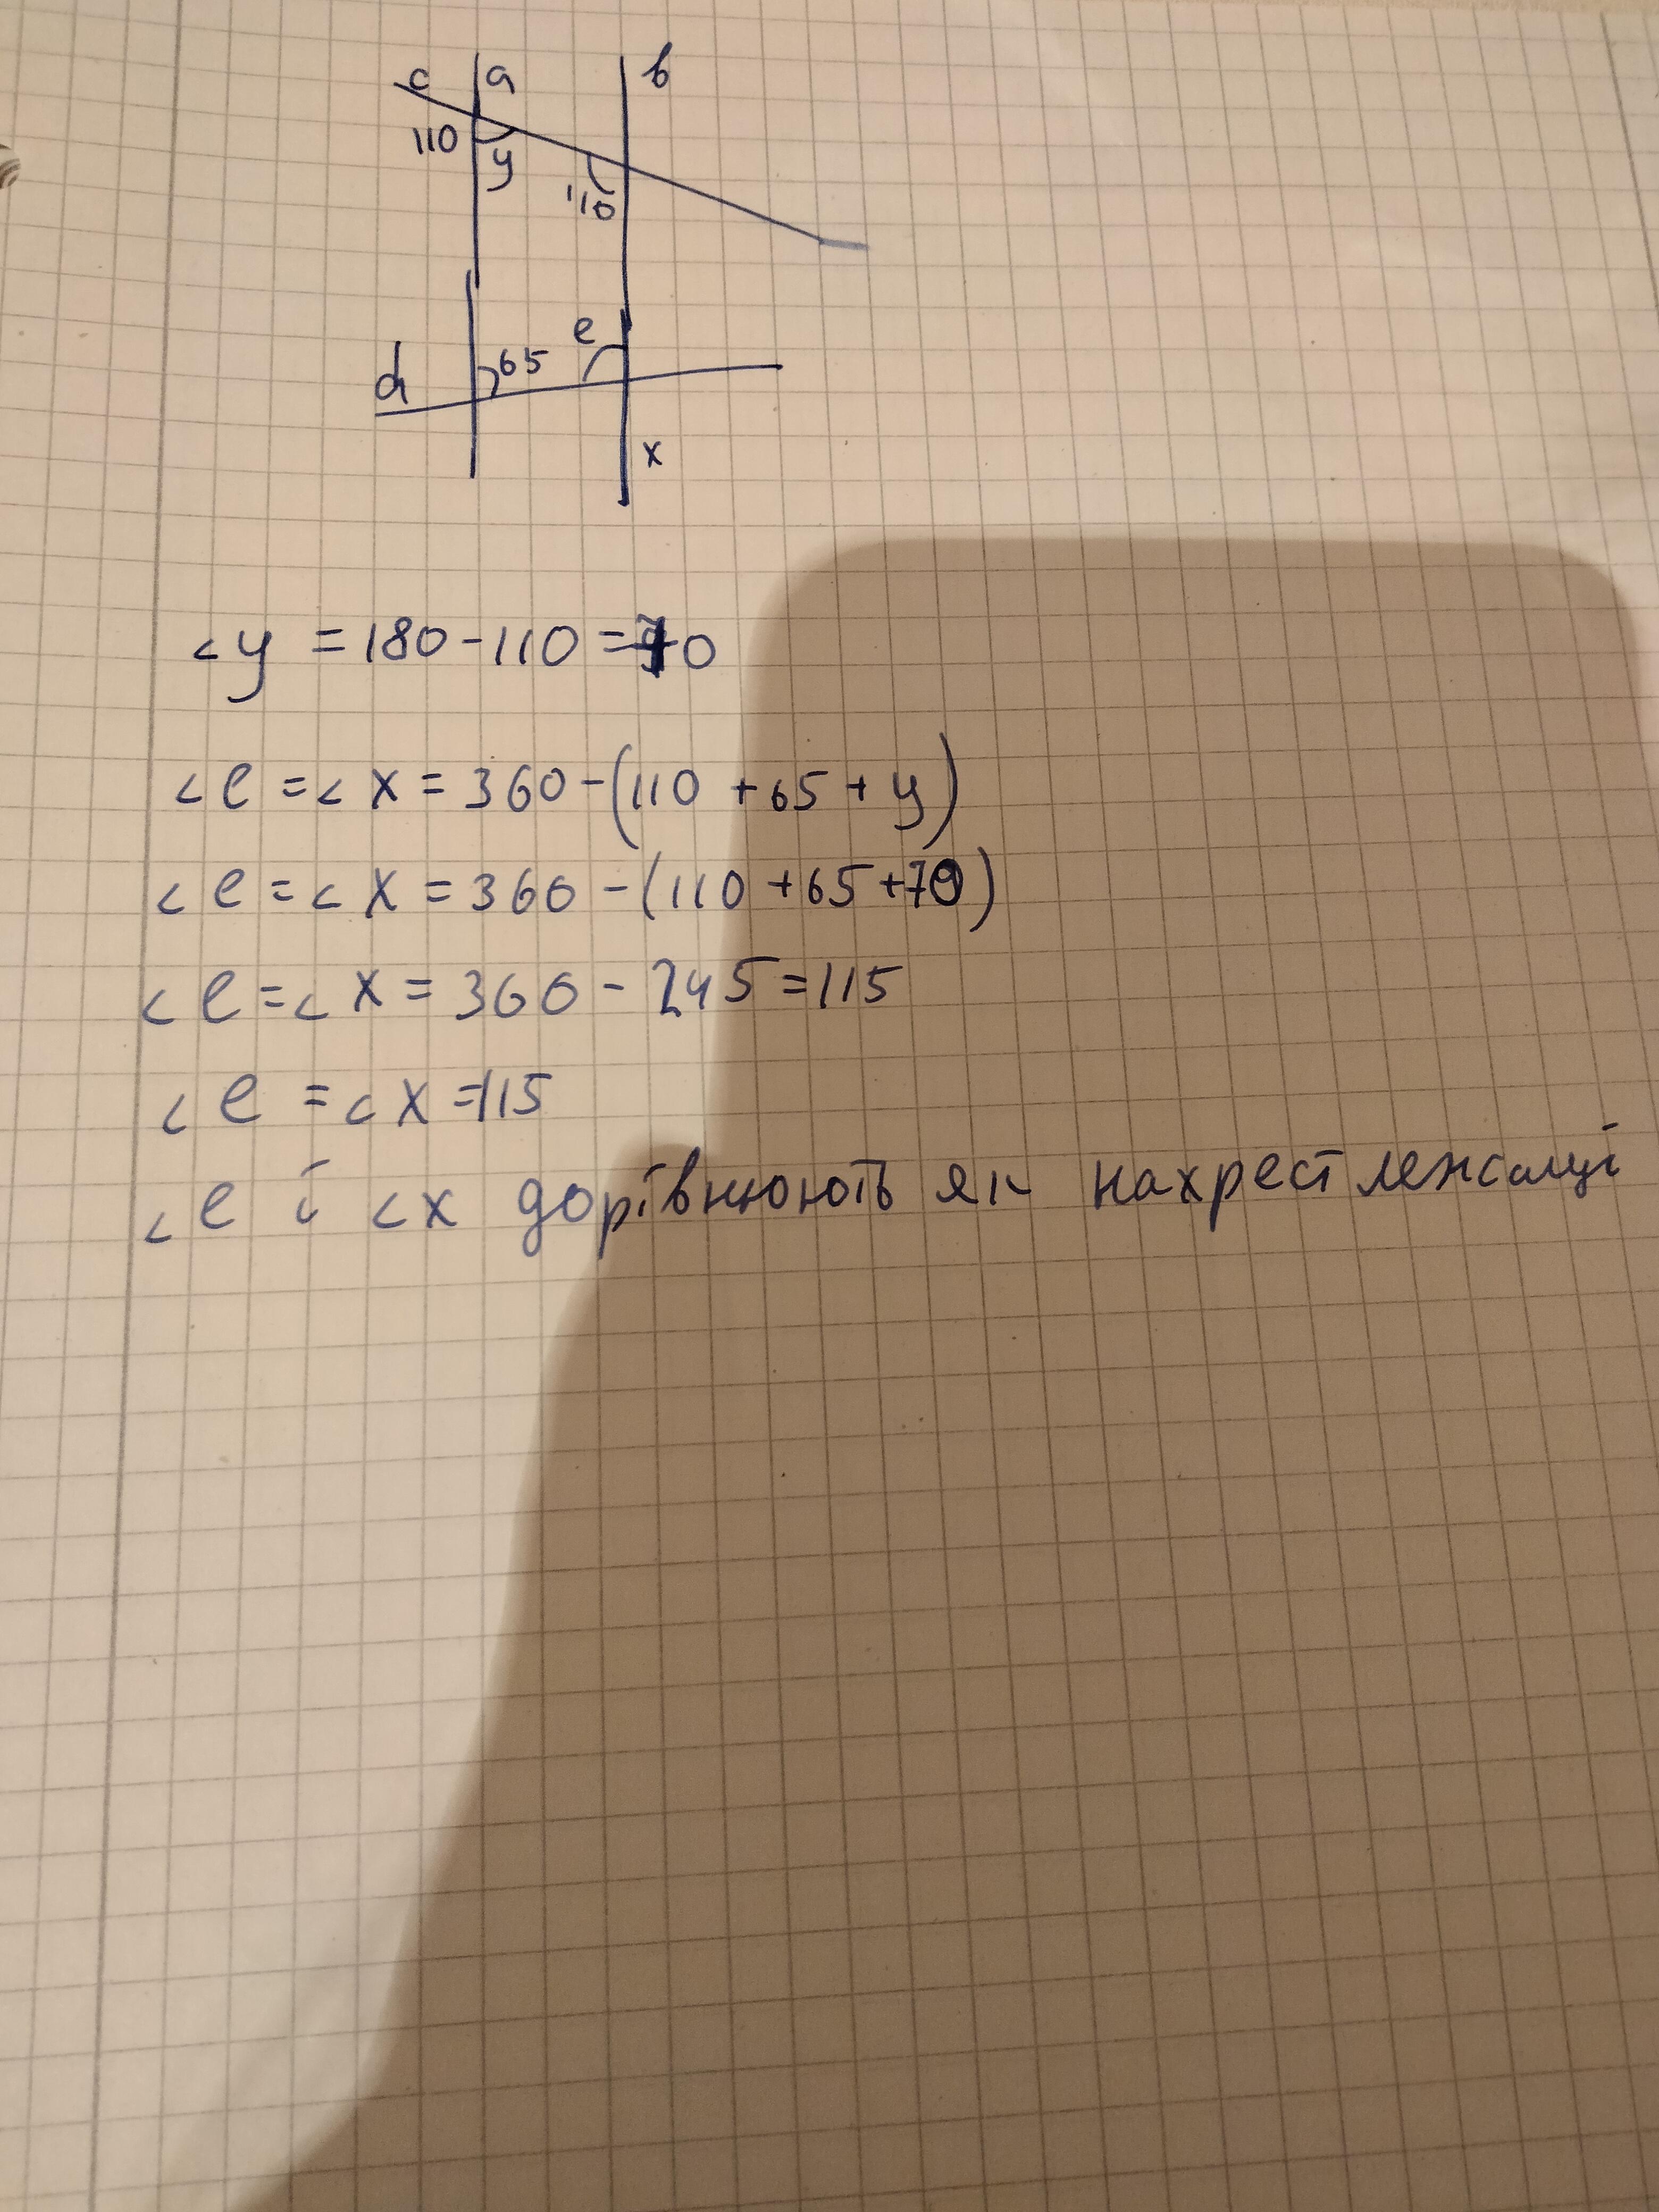 c a b
110
y
110
e
65
d
x
<y = 180 - 110 = 70
<e = <x = 360 - (110 + 65 + y)
<e = <x = 360 - (110 + 65 + 70)
<e = <x = 360 - 245 = 115
<e = <x = 115
<e і <x дорівнюють як нахрест лежащі